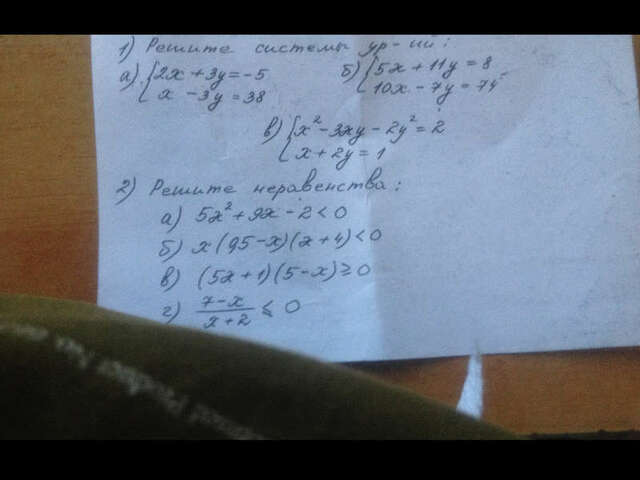 1) Решите системы ур-ий:
а) {2x + 3y = -5
x - 3y = 38
б) {5x + 11y = 8
10x - 7y = 74
в) {x² - 3xy - 2y² = 2
x + 2y = 1
2) Решите неравенства:
а) 5x² + 9x - 2 < 0
б) x (95 - x)(x + 4) < 0
в) (5x + 1)(5 - x) ≥ 0
г) 7 - x / x + 2 ≤ 0